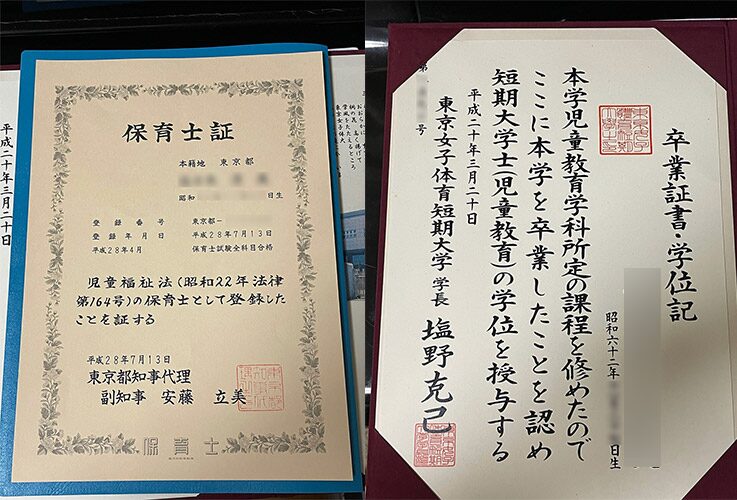 保育士証
本籍地 東京都
昭和 日生
登録番号 東京都－
登録年月日 平成28年7月13日
平成28年4月 保育士試験全科目合格
児童福祉法(昭和22年法律
第164号)の保育士として登録した
ことを証する
平成28年7月13日
東京都知事代理
副知事 安藤 立美
保育士
平成二十年三月二十日
卒業証書・学位記
昭和六十二年 日生
本学児童教育学科所定の課程を修めたので
ここに本学を卒業したことを認め
短期大学士(児童教育)の学位を授与する
平成二十年三月二十日
東京女子体育短期大学 学長 塩野克己
第 号